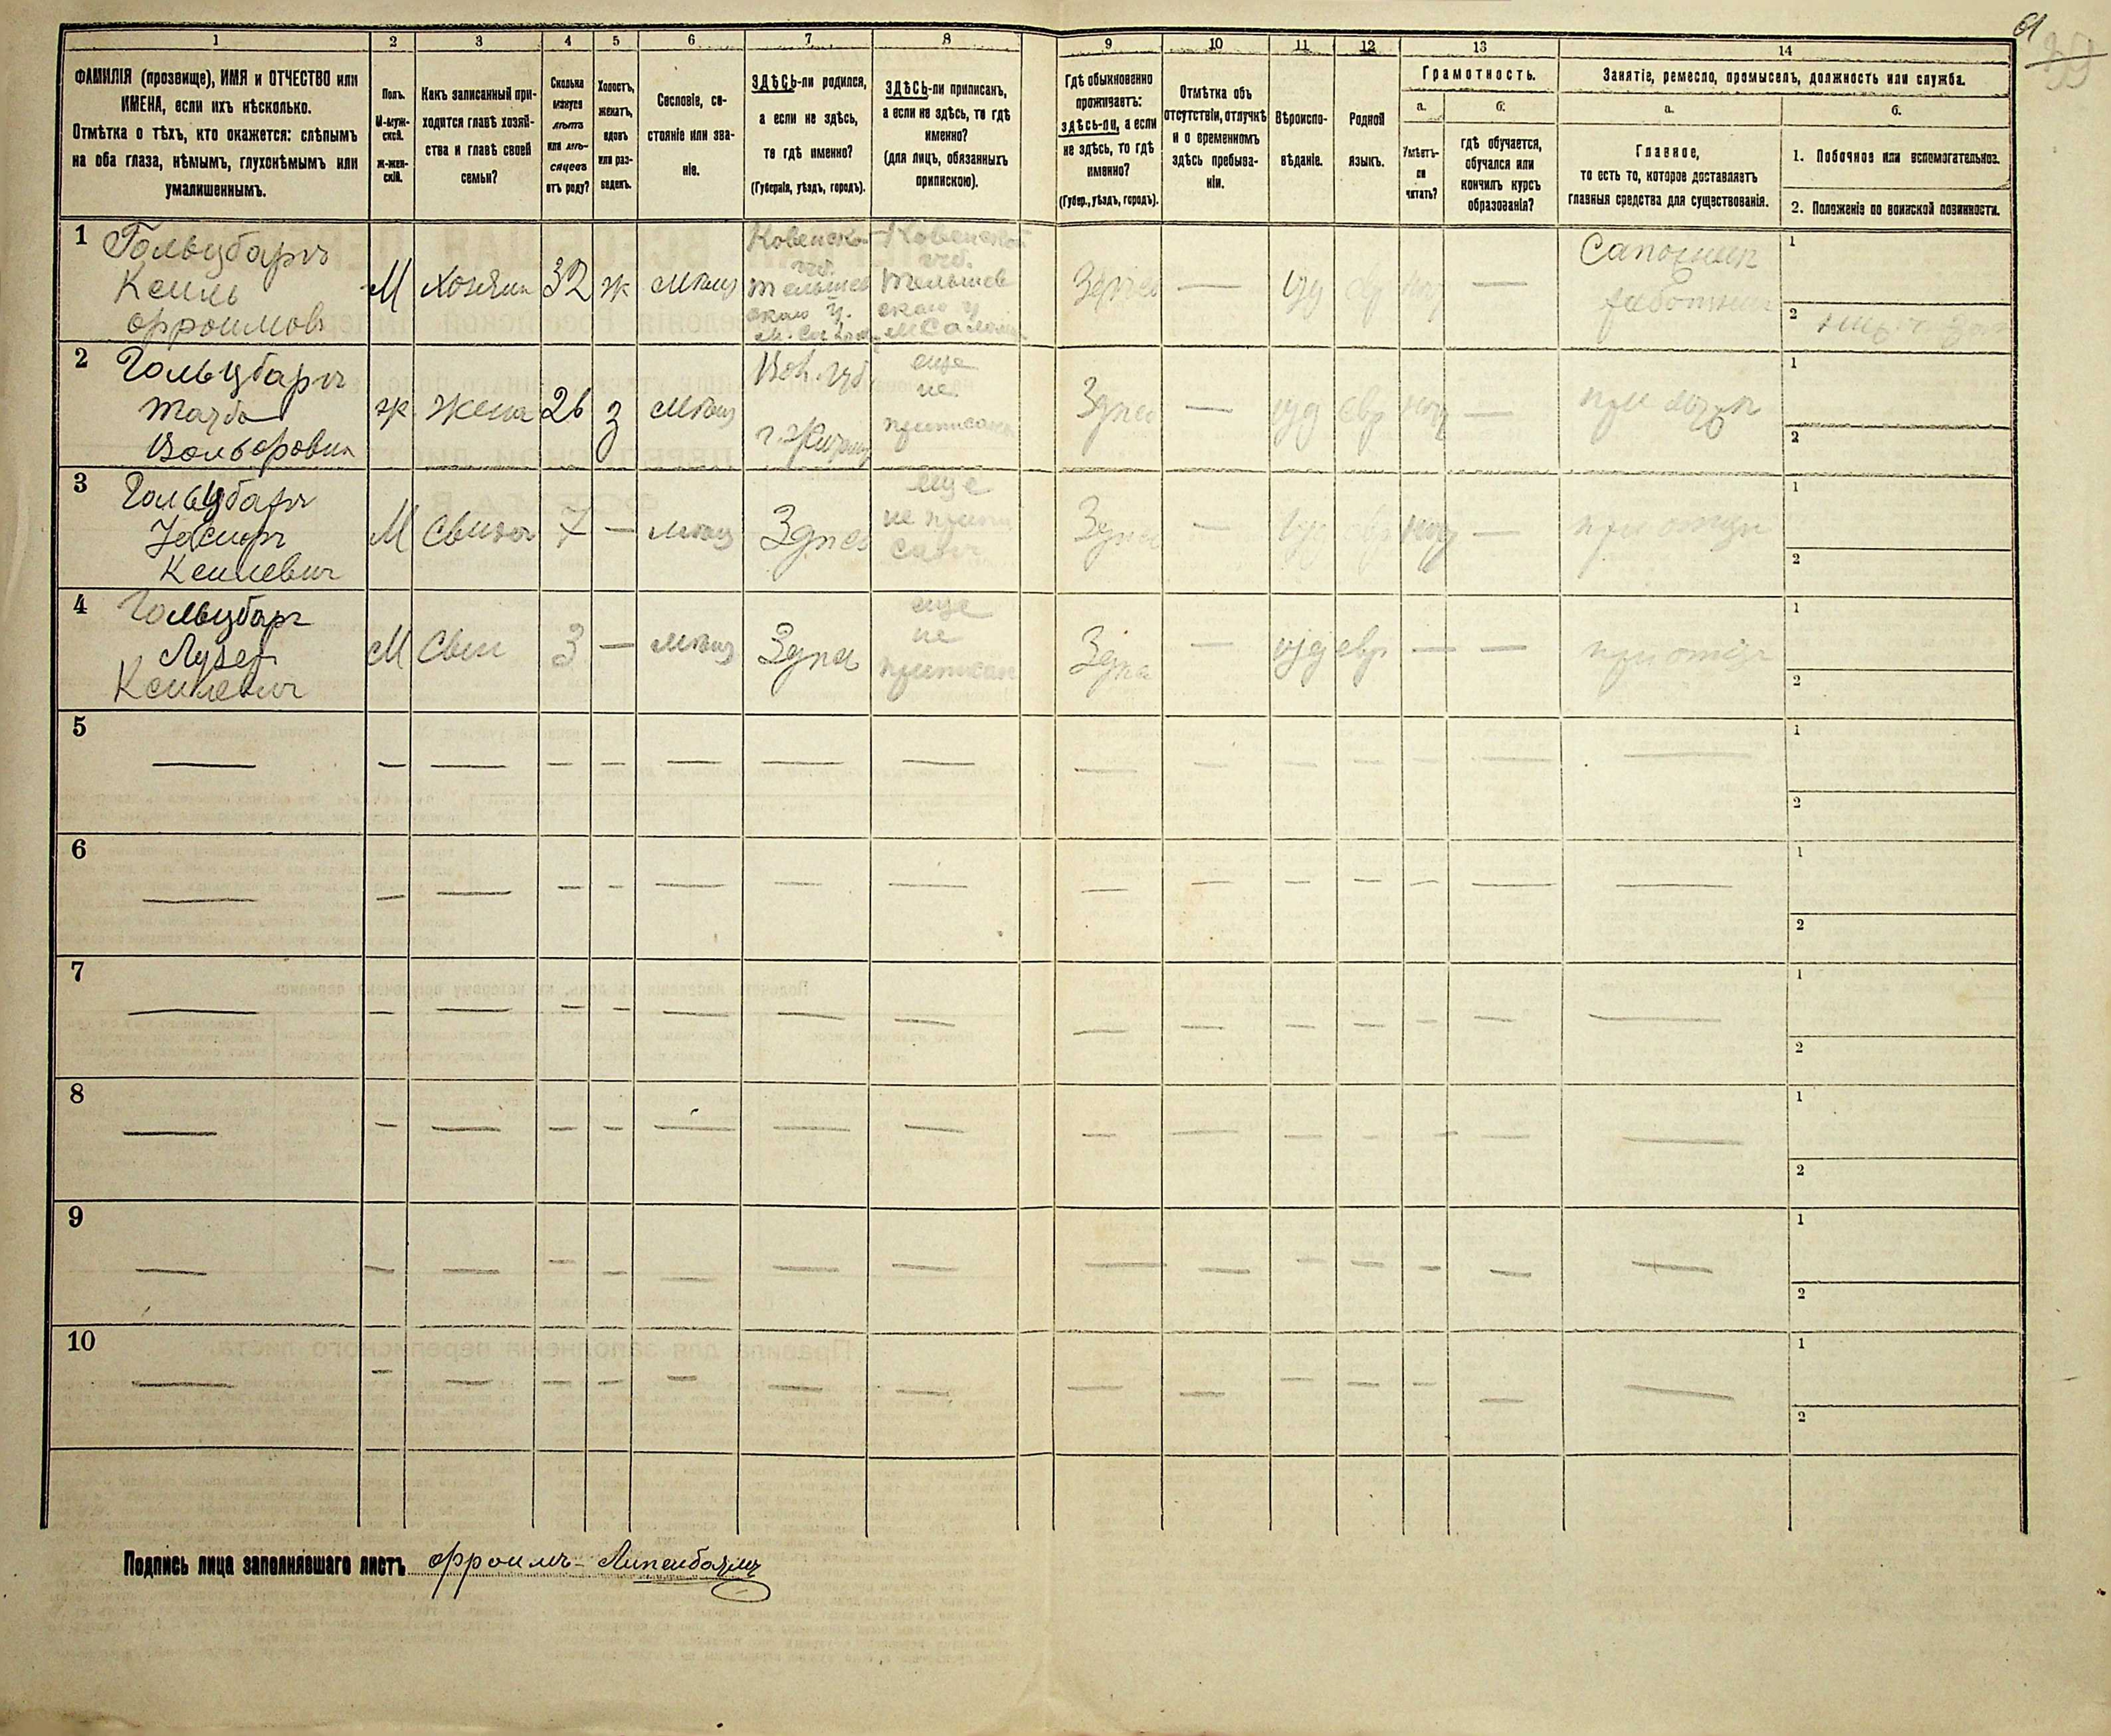 61
39
1 2 3 4 5 6 7 8 9 10 11 12 13 14
ФАМИЛІЯ (прозвище), ИМЯ и ОТЧЕСТВО или
ИМЕНА, если ихъ нѣсколько.
Отмѣтка о тѣхъ, кто окажется: слѣпымъ
на оба глаза, нѣмымъ, глухонѣмымъ или
умалишеннымъ.
Полъ.
М-муж-
ской.
Ж-жен-
скій.
Какъ записанный при-
ходится главѣ хозяй-
ства и главѣ своей
семьи?
Сколько
минуло
лѣтъ
или мѣ-
сяцевъ
отъ роду?
Холостъ,
женатъ,
вдовъ
или раз-
веденъ.
Сословіе, со-
стояніе или зва-
ніе.
ЗДѢСЬ-ли родился,
а если не здѣсь,
то гдѣ именно?
(Губернія, уѣздъ, городъ).
ЗДѢСЬ-ли приписанъ,
а если не здѣсь, то гдѣ
именно?
(для лицъ, обязанныхъ
припискою).
Гдѣ обыкновенно
проживаетъ:
здѣсь-ли, а если
не здѣсь, то гдѣ
именно?
(Губер., уѣздъ, городъ).
Отмѣтка объ
отсутствіи, отлучкѣ
и о временномъ
здѣсь пребыва-
ніи.
Вѣроиспо-
вѣданіе.
Родной
языкъ.
Грамотность.
а.
Умѣетъ-
ли
читать?
б.
гдѣ обучается,
обучался или
кончилъ курсъ
образованія?
Занятіе, ремесло, промыселъ, должность или служба.
а.
Главное,
то есть то, которое доставляетъ
главныя средства для существованія.
б.
1. Побочное или вспомогательное.
2. Положеніе по воинской повинности.
1
Гольцбаргъ
Кеиль
Фроимовъ
М
хозяинъ
32
ж
мѣщ
Ковенской
губ.
Тельшев
скаго у.
Ковенской
губ.
Тельшев
скаго у
Здѣсь
—
іуд
евр
—
Сапожник
работник
1
2
2
Гольцбаргъ
Вольфовна
ж
жена
26
з
мѣщ
Вол. губ
еще
не
приписана
Здѣсь
—
іуд
евр
—
1
2
3
Гольцбаргъ
Кеилевич
М
Свинъ
7
—
мѣщ
Здѣсь
еще
не припи
санъ
Здѣсь
—
іуд
евр
—
при отцѣ
1
2
4
Гольцбарг
Лузер
Кеилевич
М
Свин
3
—
мѣщ
Здѣсь
еще
не
приписан
Здѣсь
—
іуд
евр
—
—
при отцѣ
1
2
5
1
2
6
1
2
7
1
2
8
1
2
9
1
2
10
1
2
Подпись лица заполнявшаго листъ Фроимъ - Липенбаумъ